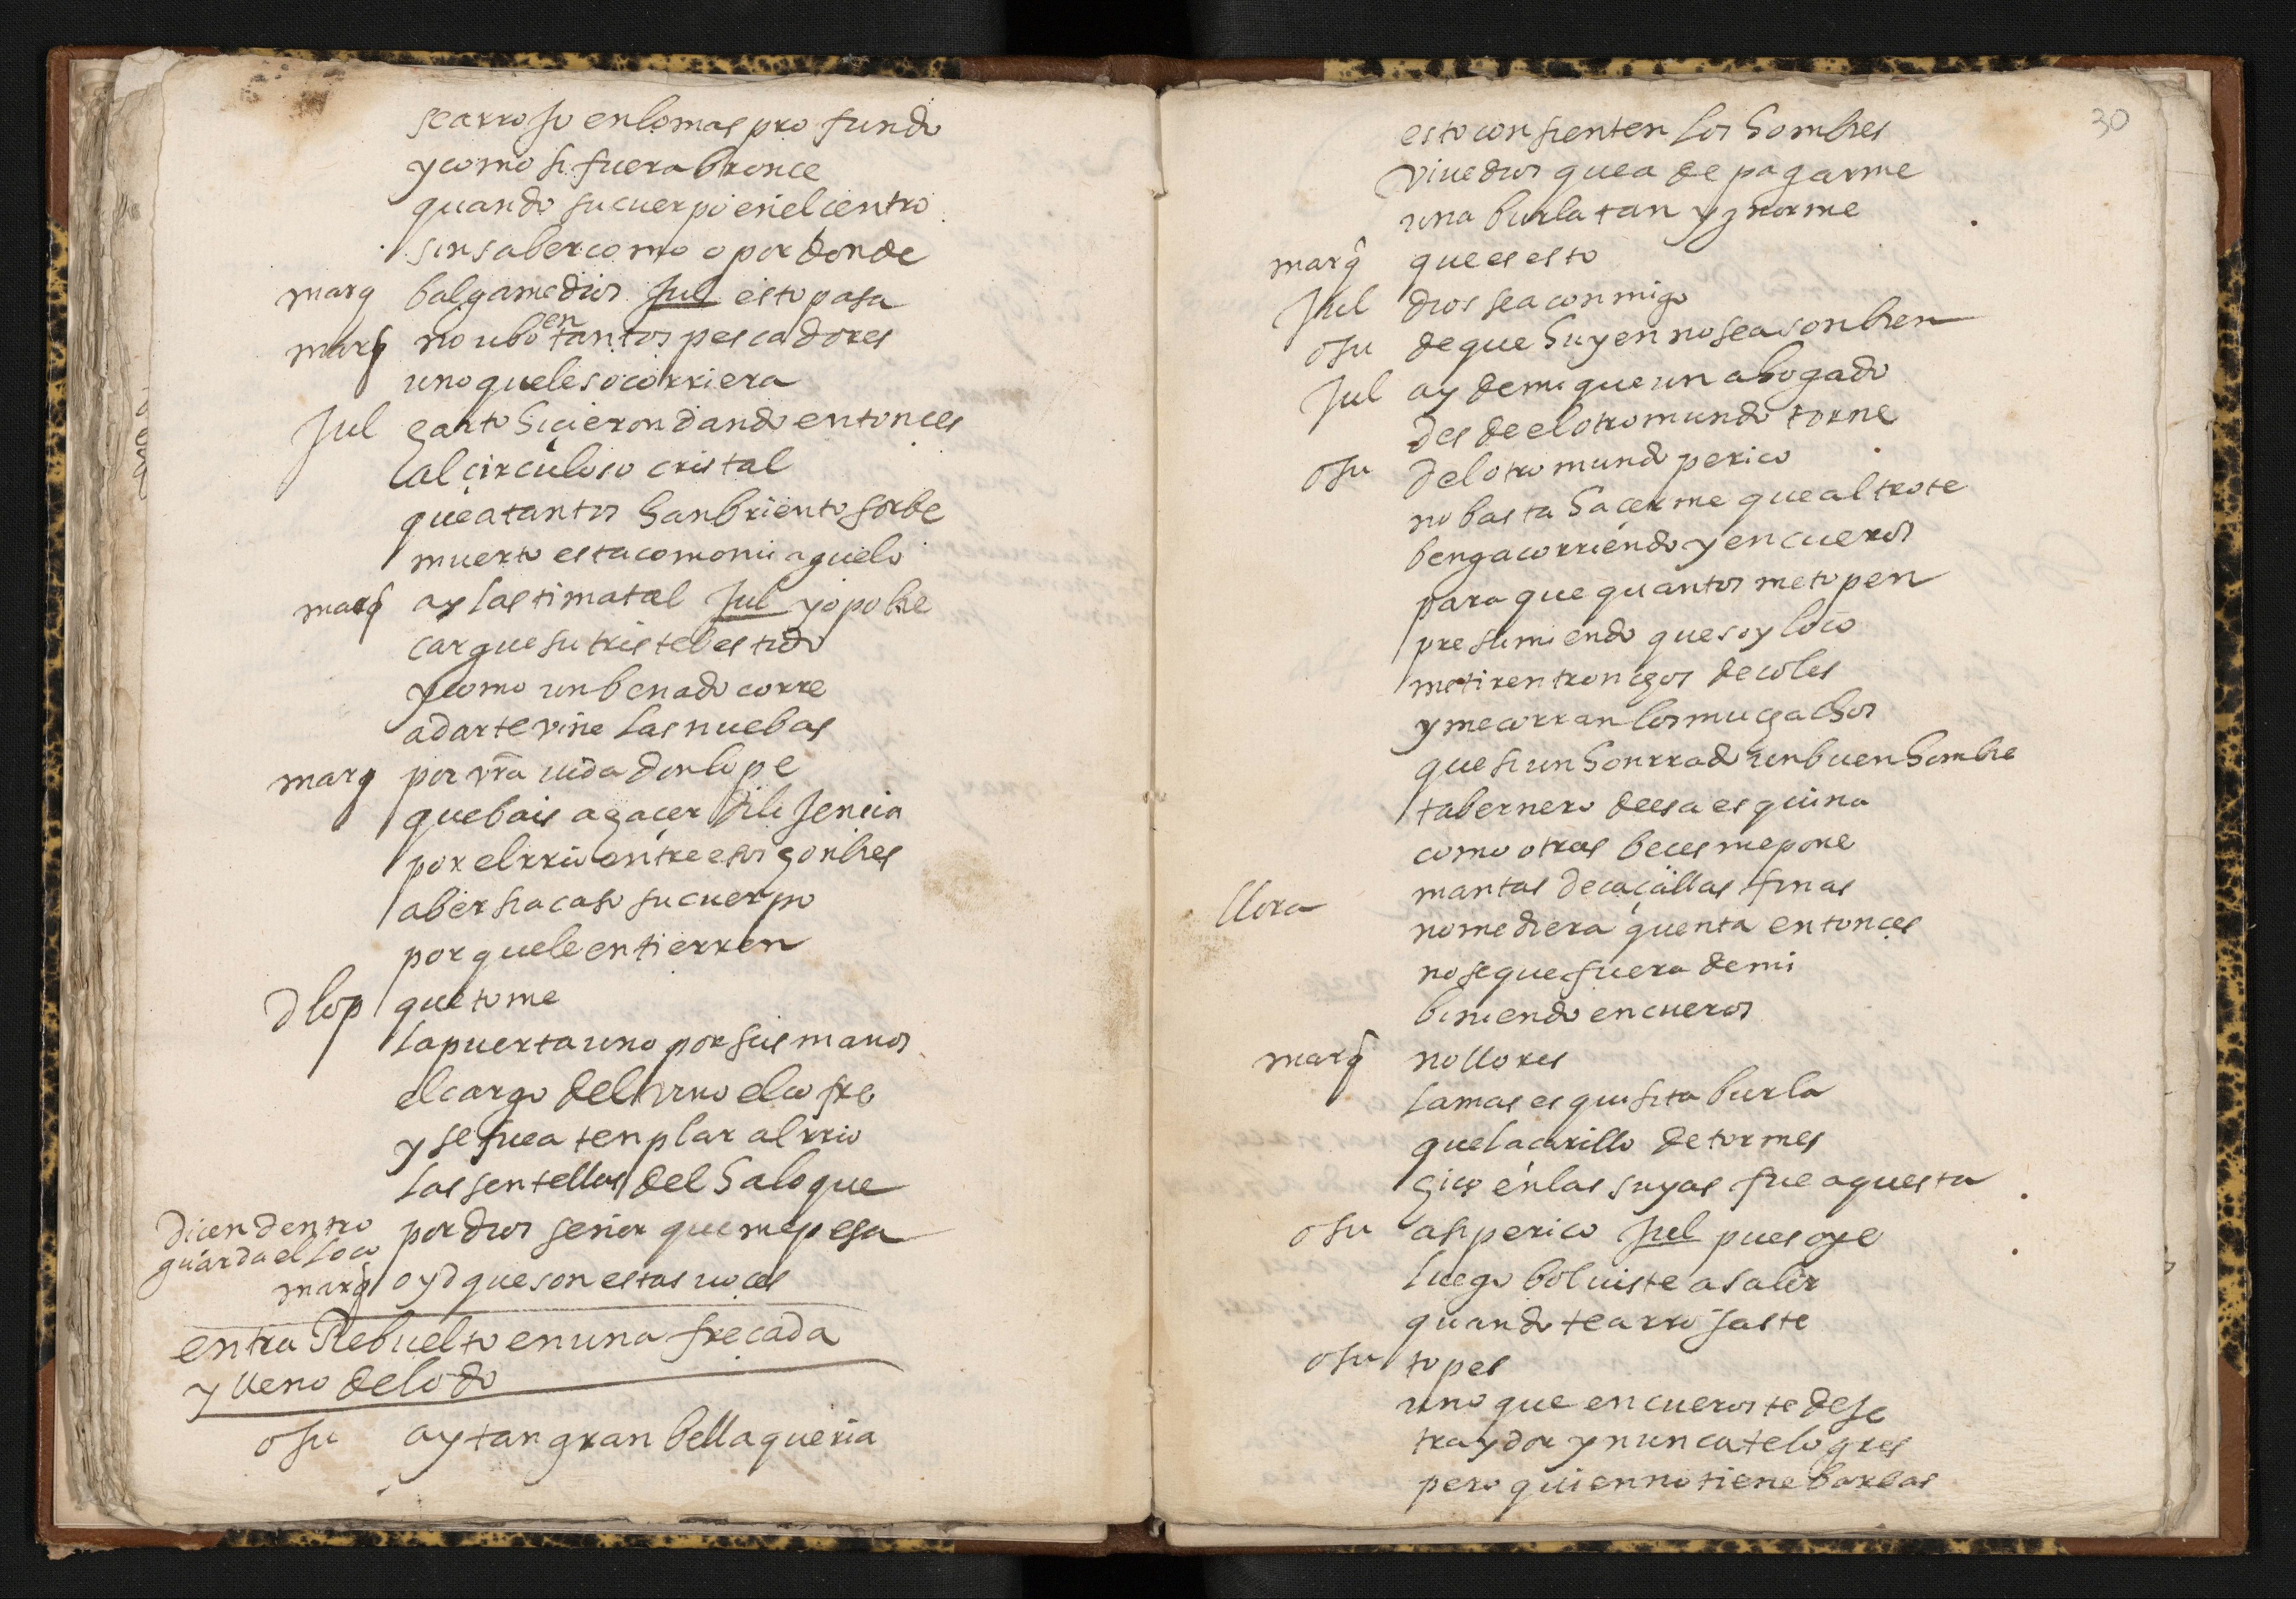 se arrojo en lo mas profundo
y como si fuera bronce
quando su cuerpo en el centro
sin saber como o por donde
marq balgame dios Jul esto pasa
marq no ubo en tantos pescadores
uno que le socorriera
Jul harto hicieron dando entonces
al circuloso cristal
que a tantos hanbriento sorbe
muerto esta como mi aguelo
marq ay lastima tal Jul yo pobre
cargue su triste bestido
y como un benado corre
a darte vine las nuebas
marq por vra uida don lope
que bais a hacer dilijencia
por el rrio entre esos honbres
a ber si acaso su cuerpo
por que le entierren
d lop que tome
la puerta uno por sus manos
el cargo del vino el cofre
y se fue a tenplar al rrio
las sentellas del haloque
dicen dentro por dios señor que me pesa
guarda el loco
marq oyd que son estas uoces
entra Rebuelto en una freçada
y lleno de lodo
osu ay tan gran bellaqueria
30
esto consienten los hombres
viue dios que a de pagarme
una burla tan ynorme
marq que es esto
Jul dios sea conmigo
osu de que huyen no seas onbren
Jul ay de mi que un ahogado
desde el otro mundo torne
osu del otro mundo perico
no basta hacerme que al trote
benga corriendo y en cueros
para que quantos me topen
presumiendo que soy loco
me tiren tronchos de coles
y me corran los muchachos
que si un honrrado un buen hombre
tabernero de esa esquina
como otras beces me pone
mantas de caçallas finas
llora no me diera quenta entonces
no se que fuera de mi
biniendo en cueros
marq no llores
la mas esquisita burla
que laçarillo de tormes
hiço en las suyas fue aquesta
osu a si perico Jul pues oye
luego boluiste a salir
quando te arrojaste
osu topes
uno que en cueros te deje
traydor y nunca te logres
pero quien no tiene barbas